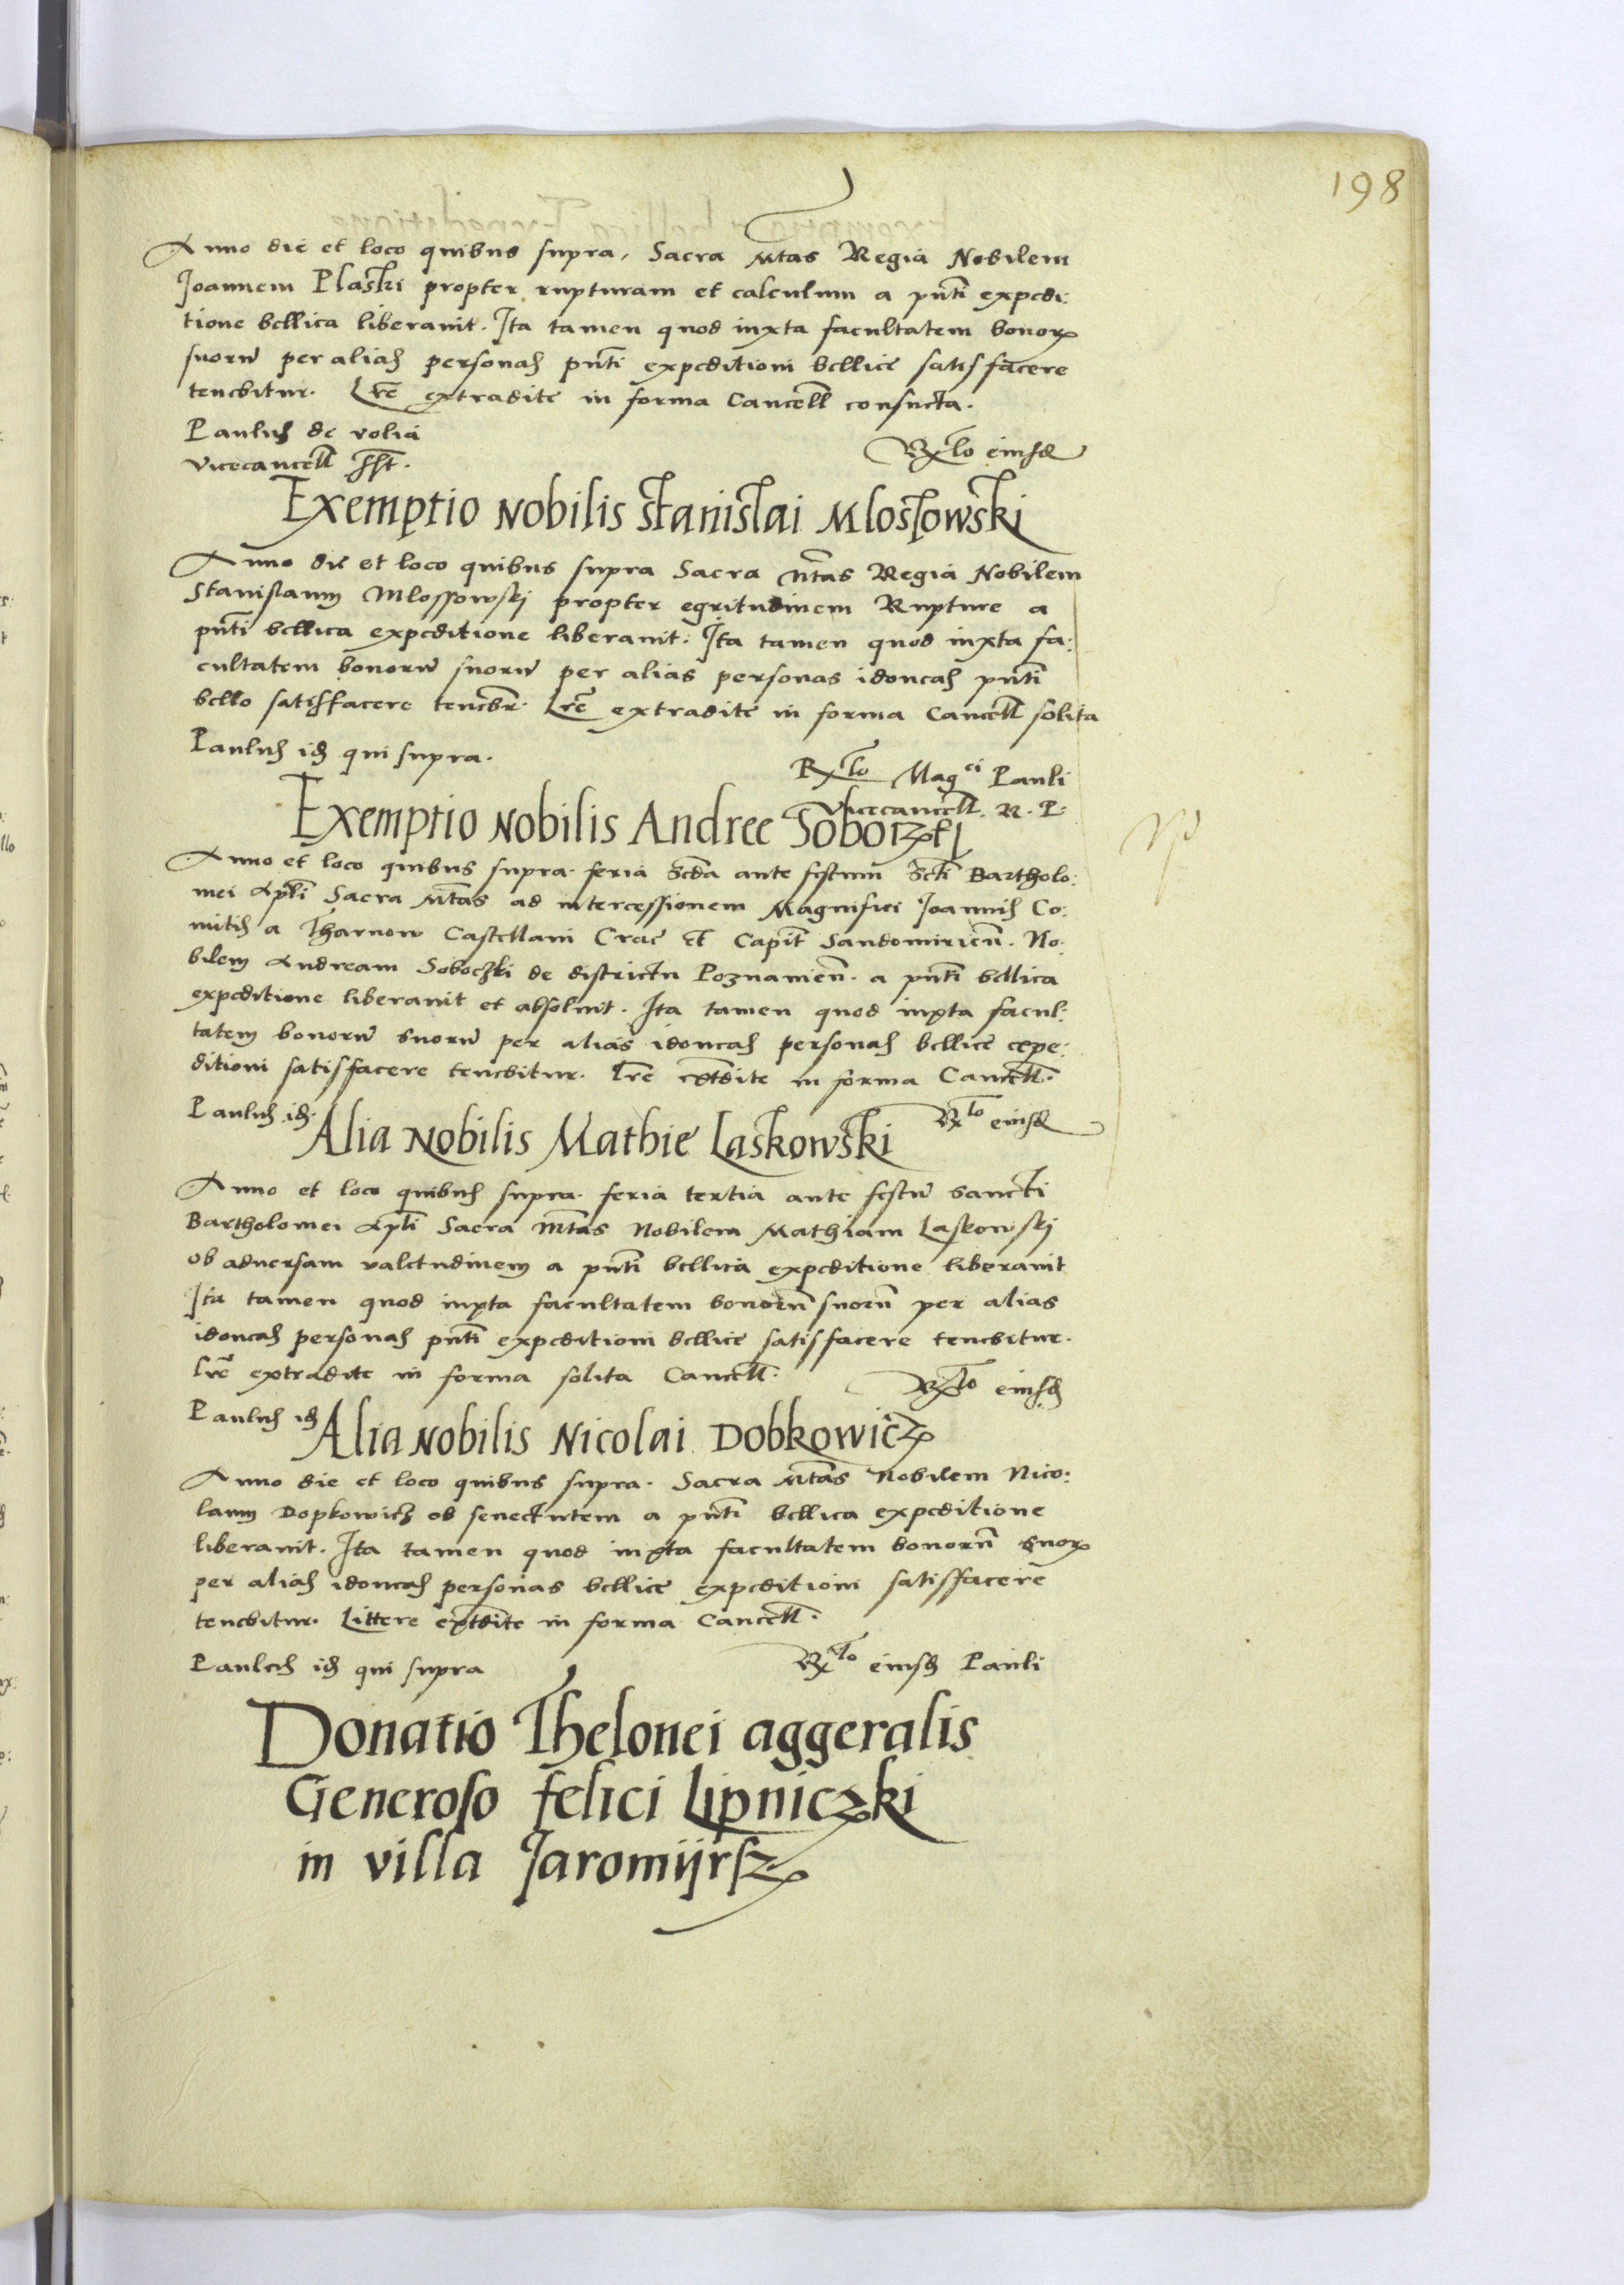 198
Anno die et loco quibus supra, Sacra Mtas Regia Nobilem
Joannem Plaski propter rupturam et calculum a pnti expedi:
tione bellica liberauit. Ita tamen quod iuxta facultatem bonoꝝ
suorũ per alias personas pnti expeditioni bellice satisfacere
tenebitur. Lre extradite in forma Cancell consueta.
Paulus de volia
vicecancell sst.
Rlo eiusd
Exemptio Nobilis Stanislai Mlossowski
Anno die et loco quibus supra Sacra Mtas Regia Nobilem
Stanislaum Mlossowskj propter egritudinem Rupture a
pnti bellica expeditione liberauit. Ita tamen quod iuxta fa:
cultatem bonorũ suorũ per alias personas idoneas pnti
bello satisfacere tenebr. Lre extradite in forma Cancell solita
Paulus id qui supra.
Rlo Magci Pauli
vicecancell. R. P.
Exemptio Nobilis Andree Soboczkj
Anno et loco quibus supra. feria Scda ante festum Scti Bartholo:
mei Apli Sacra Mtas ad intercessionem Magnifici Joannis Co:
mitis a Tharnow Castellani Crac et Capit Sandomirien. No:
bilem Andream Soboczki de districtu Poznanien. a pnti bellica
expeditione liberauit et absoluit. Ita tamen quod iuxta facul:
tatem bonorũ suorũ per alias idoneas personas bellice expe:
ditioni satisfacere tenebitur. Lre extdite in forma Cancell.
Paulus id.
Rlo eiusd
Alia Nobilis Mathie Laskowski
Anno et loco quibus supra. feria tertia ante festũ Sancti
Bartholomei Apli Sacra Mtas Nobilem Mathiam Laskowskj
ob aduersam valetudinem a pnti bellica expeditione liberauit
Ita tamen quod iuxta facultatem bonorũ suorũ per alias
idoneas personas pnti expeditioni bellice satisfacere tenebitur.
Lre extradite in forma solita Cancell.
Rlo eiusd
Paulus id
Alia Nobilis Nicolai Dobkowicz
Anno die et loco quibus supra. Sacra Mtas Nobilem Nico:
laum Dopkowicz ob senectutem a pnti bellica expeditione
liberauit. Ita tamen quod iuxta facultatem bonorũ suoꝝ
per alias idoneas personas bellice expeditioni satisfacere
tenebitur. Littere extdite in forma Cancell.
Paulus id qui supra
Rlo eiusd Pauli
Donatio Thelonei aggeralis
Generoso felici Lipniczki
in villa Jaromijrsz